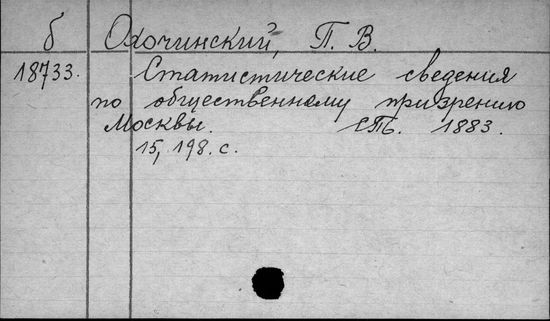 б Охочинский, П. В.
18733. Статистические сведения
по общественному призрению
Москвы. СПб. 1883.
15, 198. с.